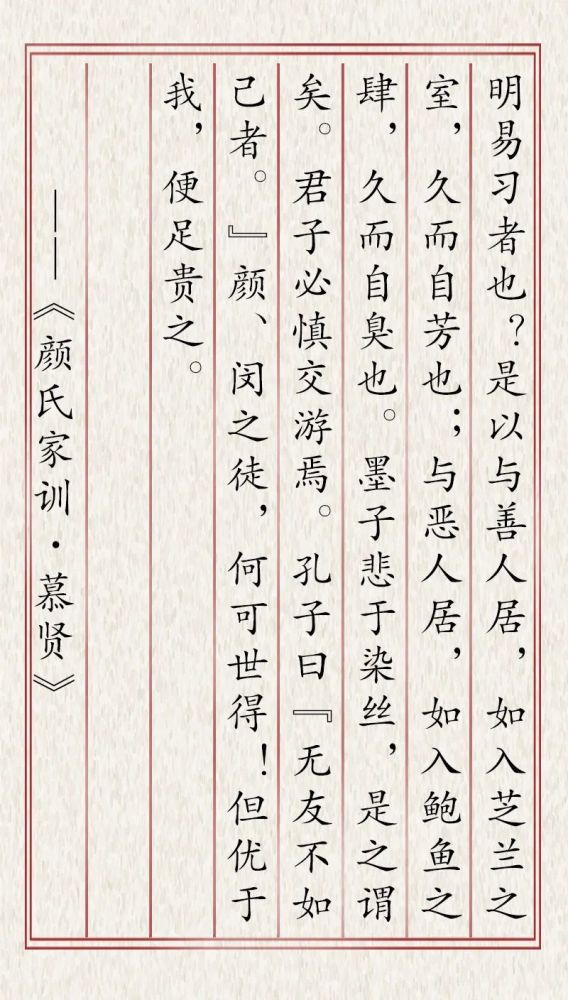 明易习者也？是以与善人居，如入芝兰之
室，久而自芳也；与恶人居，如入鲍鱼之
肆，久而自臭也。墨子悲于染丝，是之谓
矣。君子必慎交游焉。孔子曰『无友不如
己者。』颜、闵之徒，何可世得！但优于
我，便足贵之。
——《颜氏家训·慕贤》